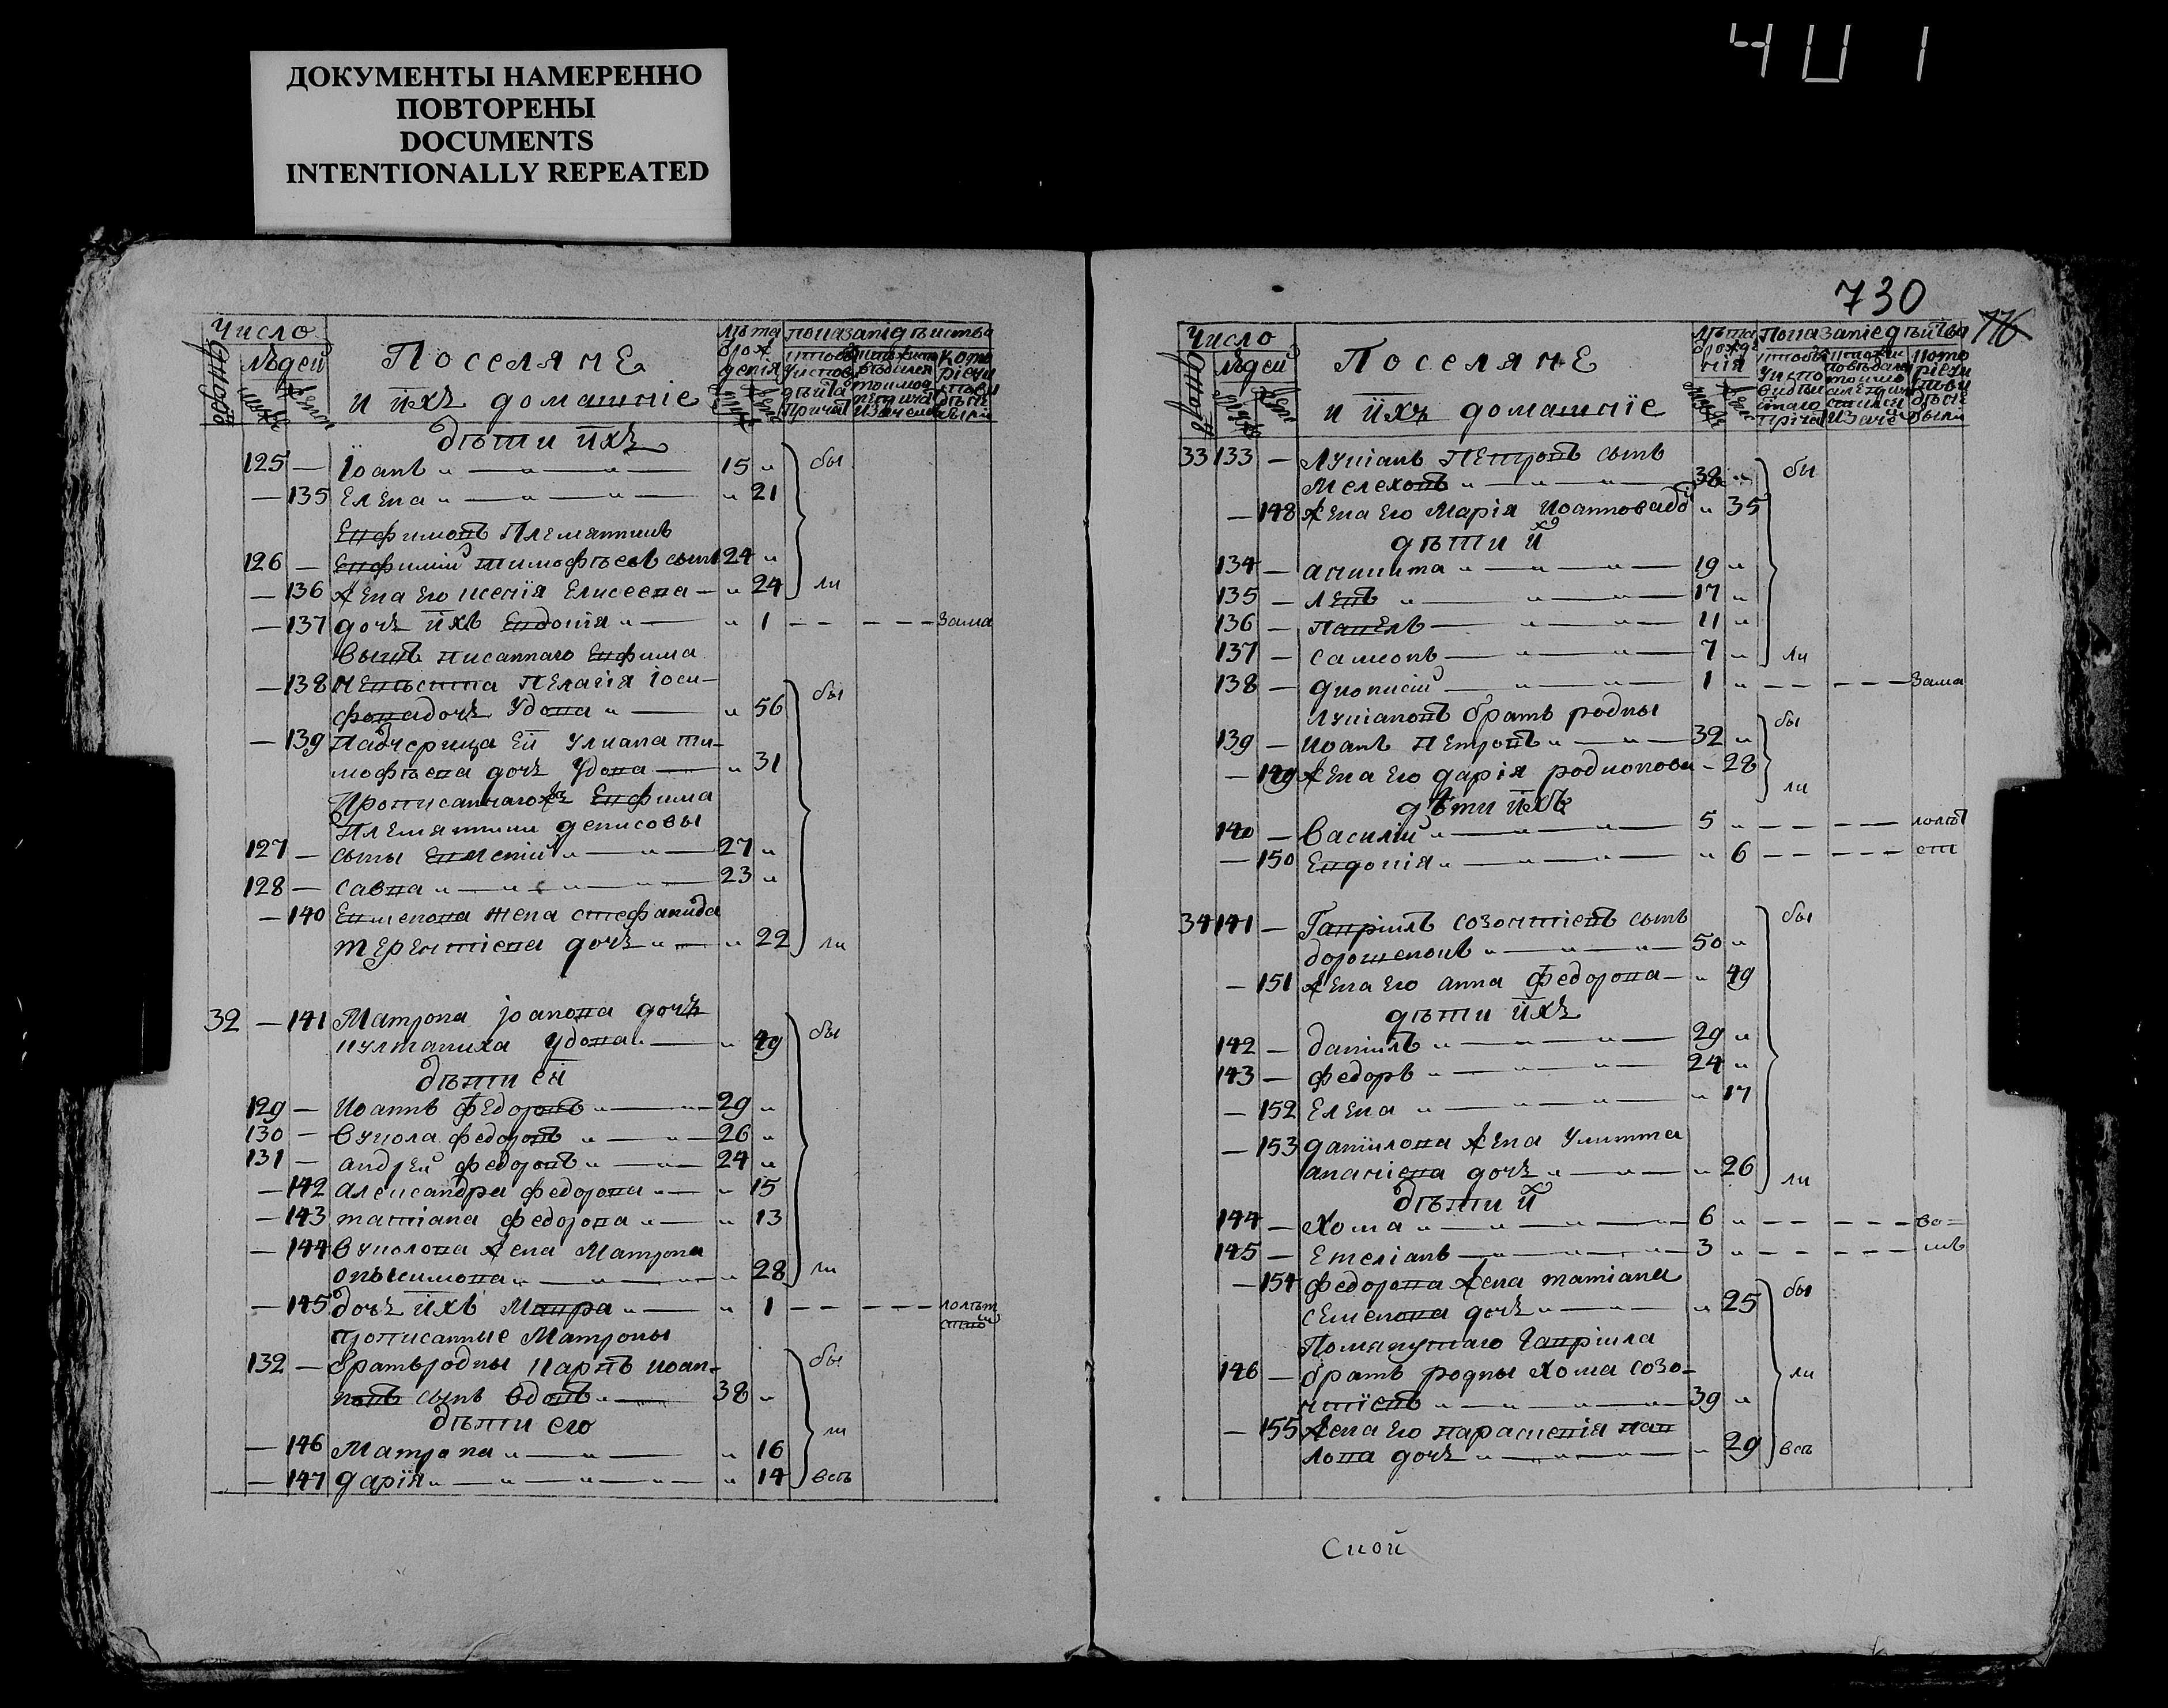 ДОКУМЕНТЫ НАМЕРЕННО
ПОВТОРЕНЫ
DOCUMENTS
INTENTIONALLY REPEATED
401
Число
людей
Поселяне
и ихъ домашніе
дѣти ихъ
125 — Іоанъ 15
— 135 Елена 21
Евфимовъ Племянникъ
126 — Евфимий тимофѣевъ сынъ 24
— 136 Жена его ксенія Елисеева 24
— 137 дочь ихъ Евдокія 1 — — — — — зама
Вышъ писаннаго Евфима
— 138 невѣстка Пелагія Іоси-
фовадочь Удова 56
— 139 Падчерица Ей Улиана ти-
мофѣева дочь Удова 31
Прописаннагожъ Евфима
Племянники денисовы
127 — сыны 27
128 — савва 23
— 140 жена стефанида
терентіева дочь 22
бы
ли
32 — 141 Матрона іоанова дочь
Удова 49
дѣти ей
129 — Иоаннъ федоровъ 29
130 — Вукола федоровъ 26
131 — андрей федоровъ 24
— 142 александра федорова 15
— 143 татіана федорова 13
— 144 Вуколова жена Матрона
онысимова 28
— 145 дочь ихъ Мавра 1
прописанные Матроны
132 — братъродны Карпъ иоан-
новъ сынъ Вдовъ 38
дѣти его
— 146 Матрона 16
— 147 дарія 14
730
Число
людей
Поселяне
и ихъ домашніе
33 133 — Лукіанъ Петровъ сынъ
Мелеховъ 38
— 148 Жена Его Марія Иоанновадо 35
дѣти ихъ
134 — аникита 19
135 — левъ 17
136 — павелъ 11
137 — самсонъ 7
138 — дионисий 1 — — — — — зама
Лукіановъ братъ родны
139 — Иоанъ Петровъ 32
— 149 Жена его дарія родионова 28
дѣти ихъ
140 — Василий 5
— 150 Евдокія 6
34 141 — Гавріилъ созонтіевъ сынъ
дорошенокъ 50
— 151 Жена его анна федорова 49
дѣти ихъ
142 — даниилъ 29
143 — федоръ 24
— 152 Елена 17
— 153 даниилова жена Улитта
ананіева дочь 26
дѣти ихъ
144 — Хома 6
145 — Емеліанъ 3
— 154 федорова жена татіана
семенова дочь 25
Помянутаго Гавріила
146 — братъ родны Хома созо-
нтіевъ 39
— 155 жена его параскевія пав
лова дочь 29